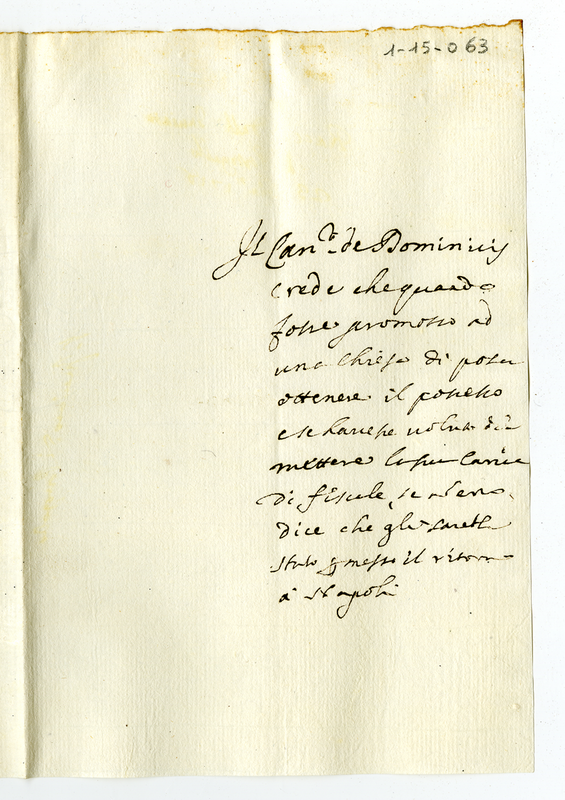 1-15-063
Il Can.co de Dominicis
crede che quando
fosse promosso ad
una chiesa di poter
ottenere il possesso
e se havesse voluto di
mettere la sua carica
di fiscale, se
dice che gli sarebbe
stato permesso il ritorno
à Napoli